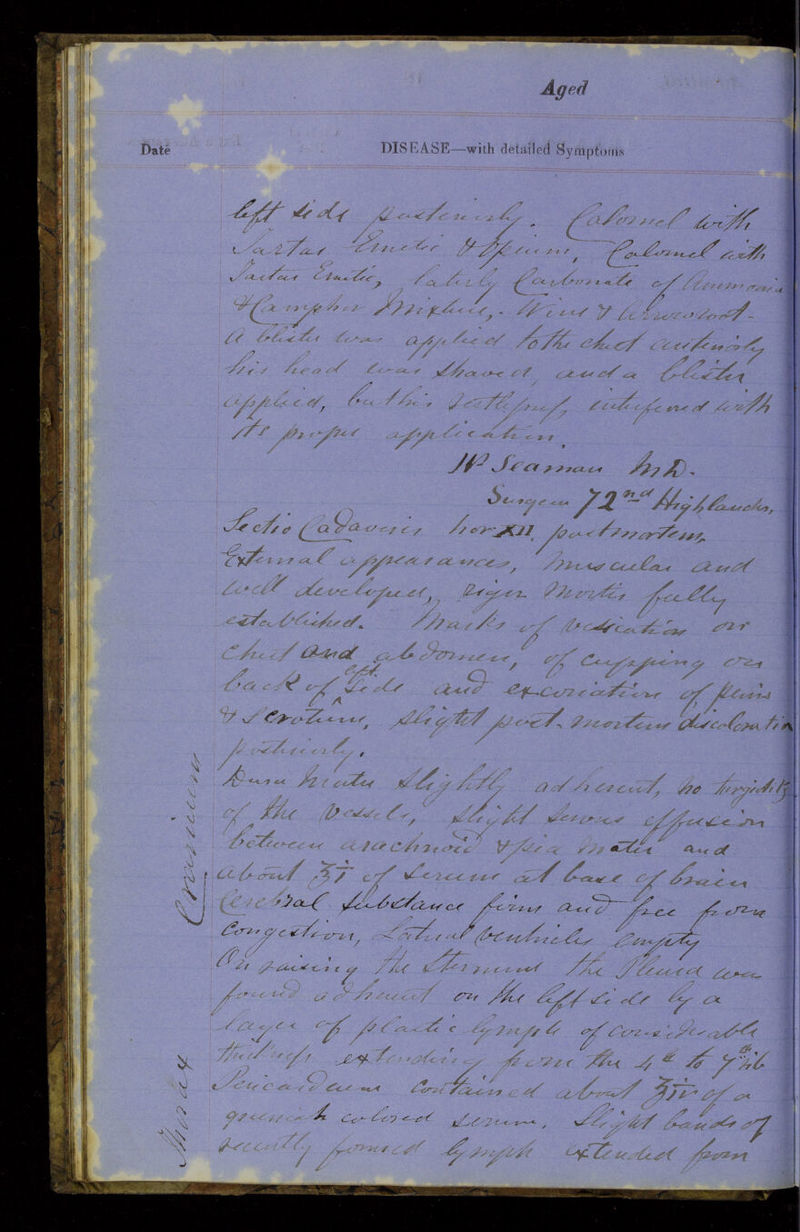 Aged
Date
DISEASE—with detailed Symptoms
left side posteriorly. Calomel with
Tartar Emetic & Opium, Calomel with
Tartar Emetic, latterly Carbonate of Ammonia
& Camphor Mixture, Wine & Arrowroot -
A blister was applied to the chest anteriorly
his head was shaved, and a blister
applied, but his restlessness, interfered with
its proper application.
Seaman MD.
Surgeon 72nd Highlanders,
Sectio Cadaveris hor XII. postmortem,
External appearances, Muscular and
well developed, rigor Mortis fully
established. Marks of vesication on
chest and abdomen, of cupping on
back of left side and excoriation of penis
& scrotum, slight post-mortem discoloration
posteriorly.
Cranium
Dura Mater slightly adherent, no turgidity
of the vessels, slight serous effusion
between arachnoid & pia mater and
about ℥i of serum at base of brain
Cerebral substance firm and free from
congestion, Lateral ventricles empty
Thorax
On raising the Sternum the Pleura was
found adherent on the left side by a
layer of plastic lymph of considerable
thickness extending from the 4th to 7th rib
Pericardium contained about ℥iv of a
greenish colored serum. Slight bands of
recently formed lymph extended from